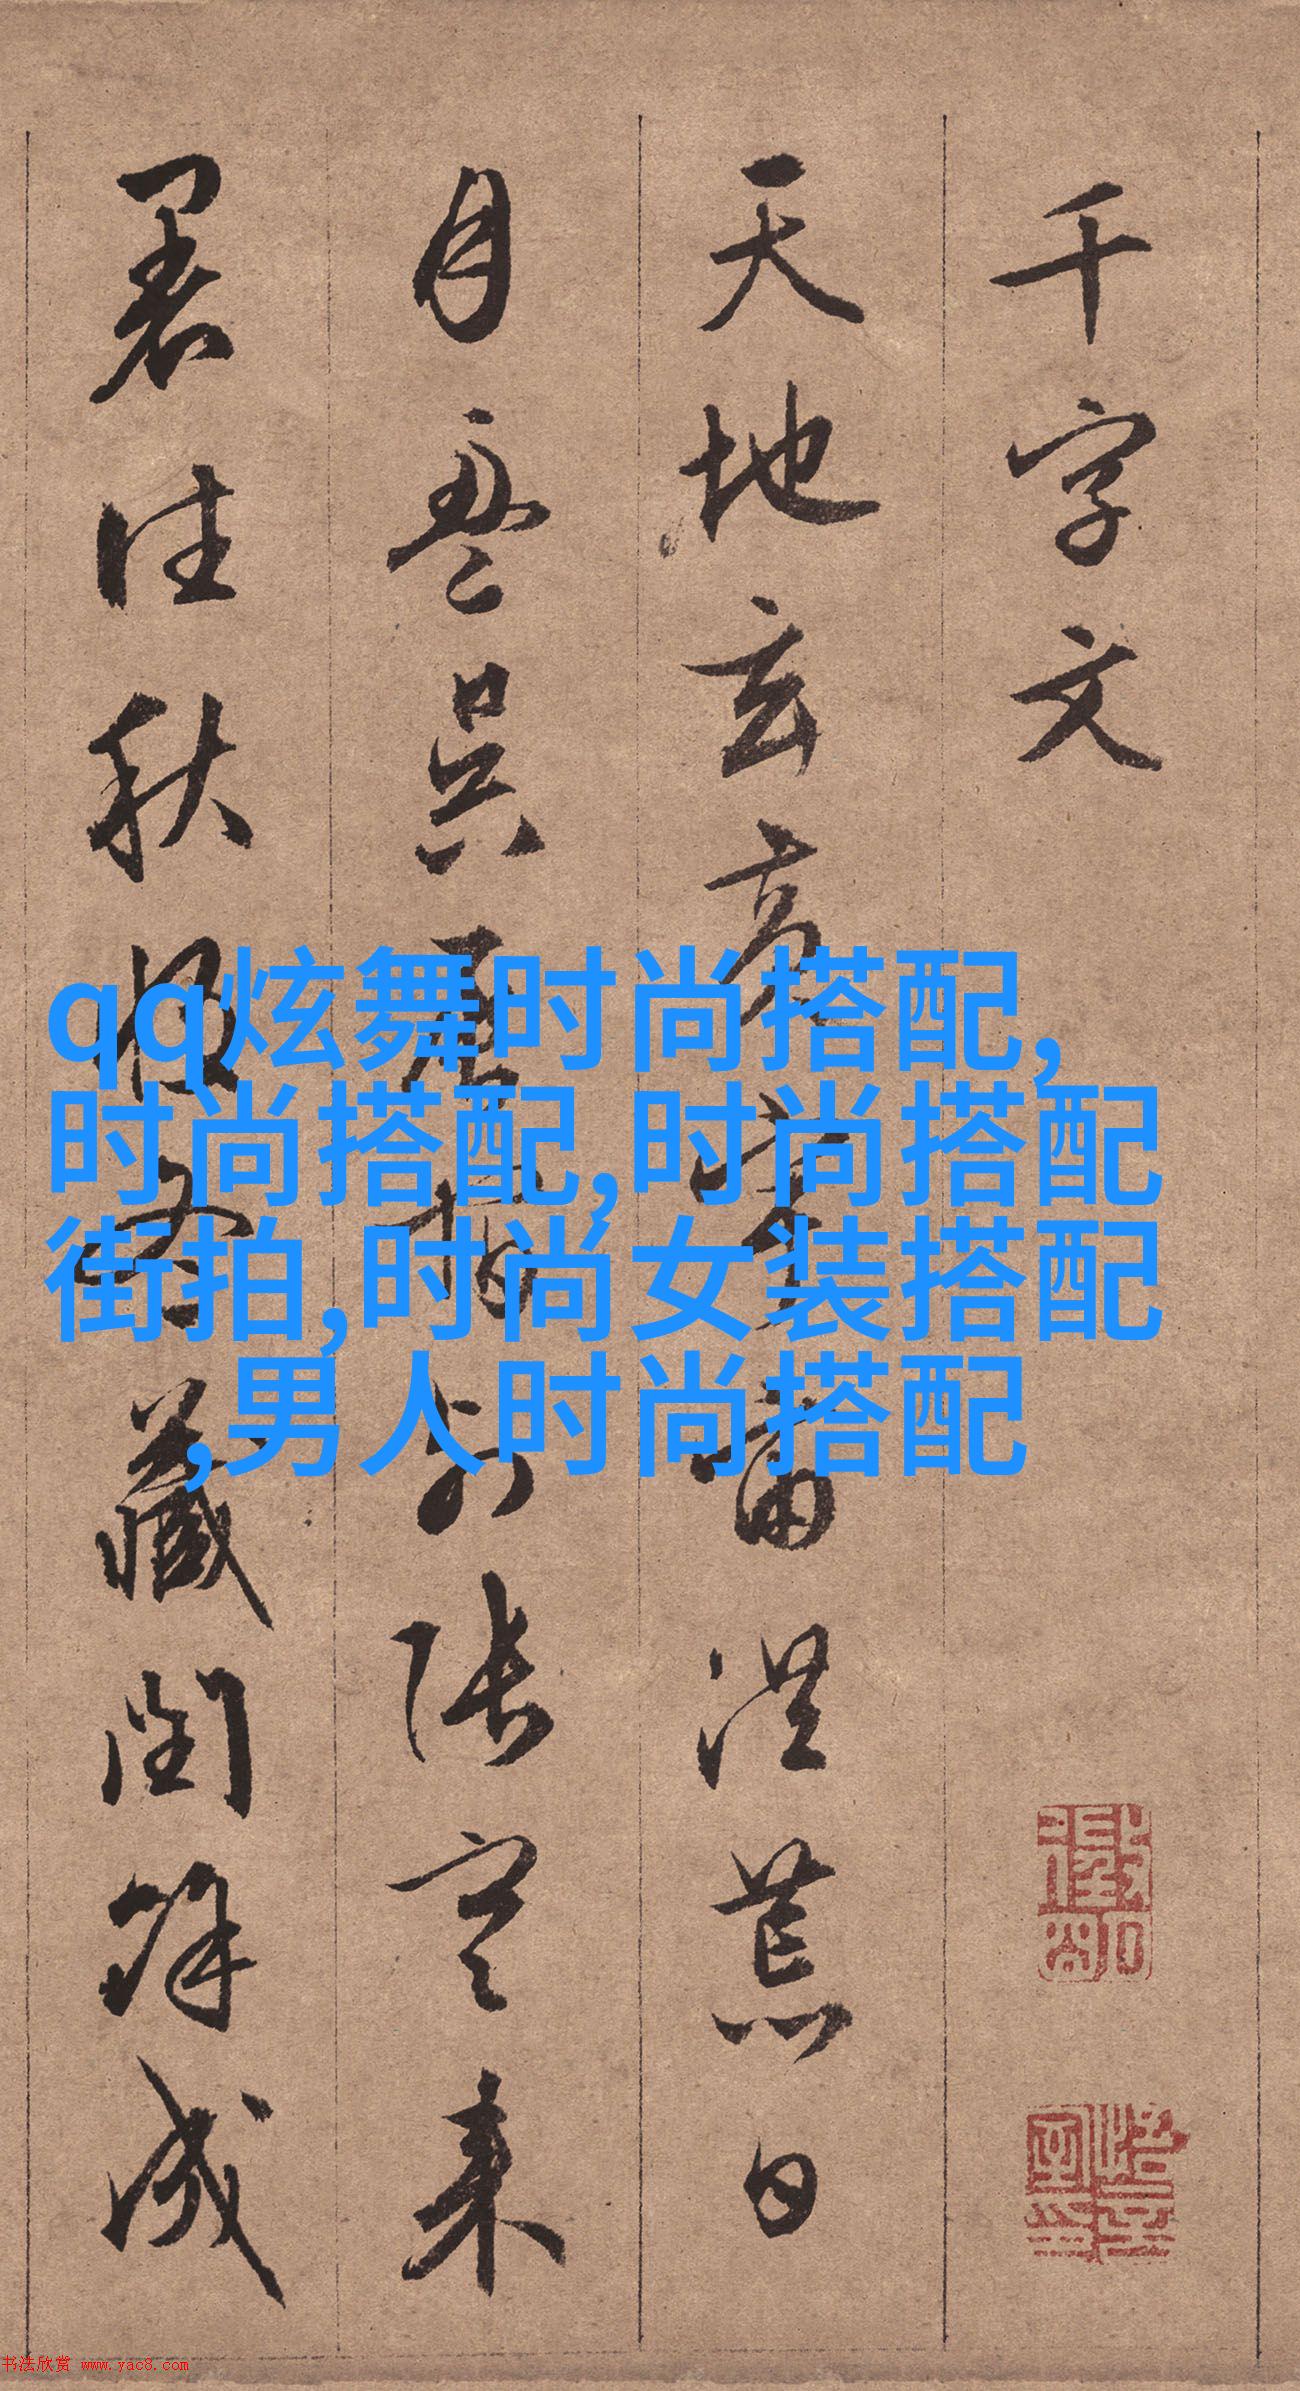 千字文
天地玄黃宇宙洪荒日
月盈昃辰宿列張寒來
暑往秋收冬藏閏餘成
qq炫舞时尚搭配,
时尚搭配,时尚搭配
街拍,时尚女装搭配
,男人时尚搭配
书法欣赏 www.yac8.com